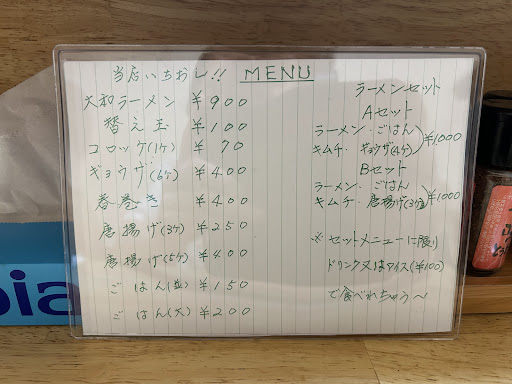 当店いちおし!! MENU
大和ラーメン ¥900
替え玉 ¥100
コロッケ(1ケ) ¥70
ギョウザ(6ケ) ¥400
春巻き ¥400
唐揚げ(3ケ) ¥250
唐揚げ(5ケ) ¥400
ごはん(並) ¥150
ごはん(大) ¥200
ラーメンセット
Aセット
ラーメン・ごはん
キムチ・ギョウザ(4ケ) ¥1,000
Bセット
ラーメン・ごはん
キムチ・唐揚げ(3ケ) ¥1000
※ セットメニューに限り
ドリンク又はアイス(¥100)
で食べれちゃう〜
pia